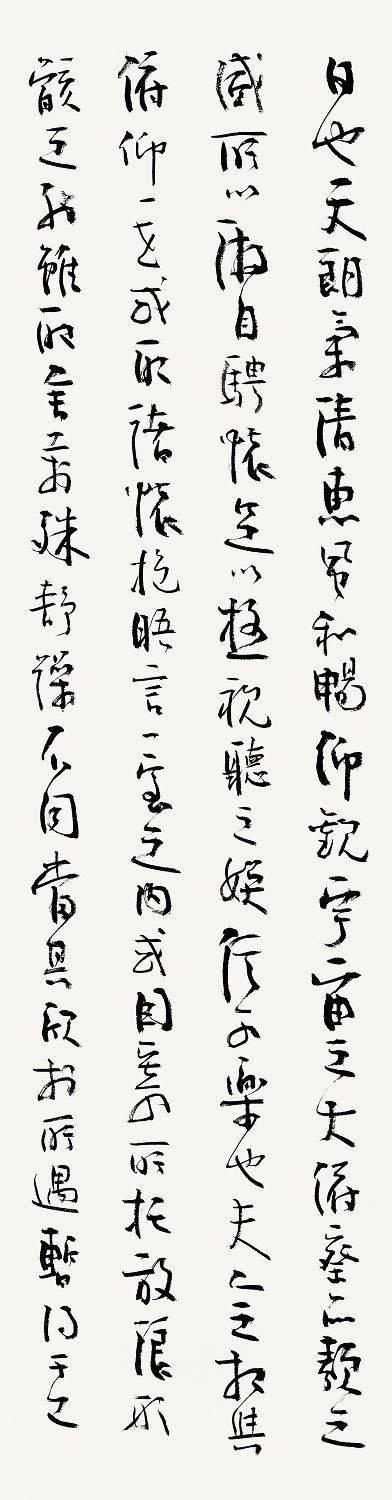 日也天朗氣清惠風和暢仰觀宇宙之大俯察品類之
盛所以遊目騁懷足以極視聽之娛信可樂也夫人之相與
俯仰一世或取諸懷抱晤言一室之內或因寄所托放浪形
骸之外雖取舍萬殊靜躁不同當其欣於所遇暫得于己